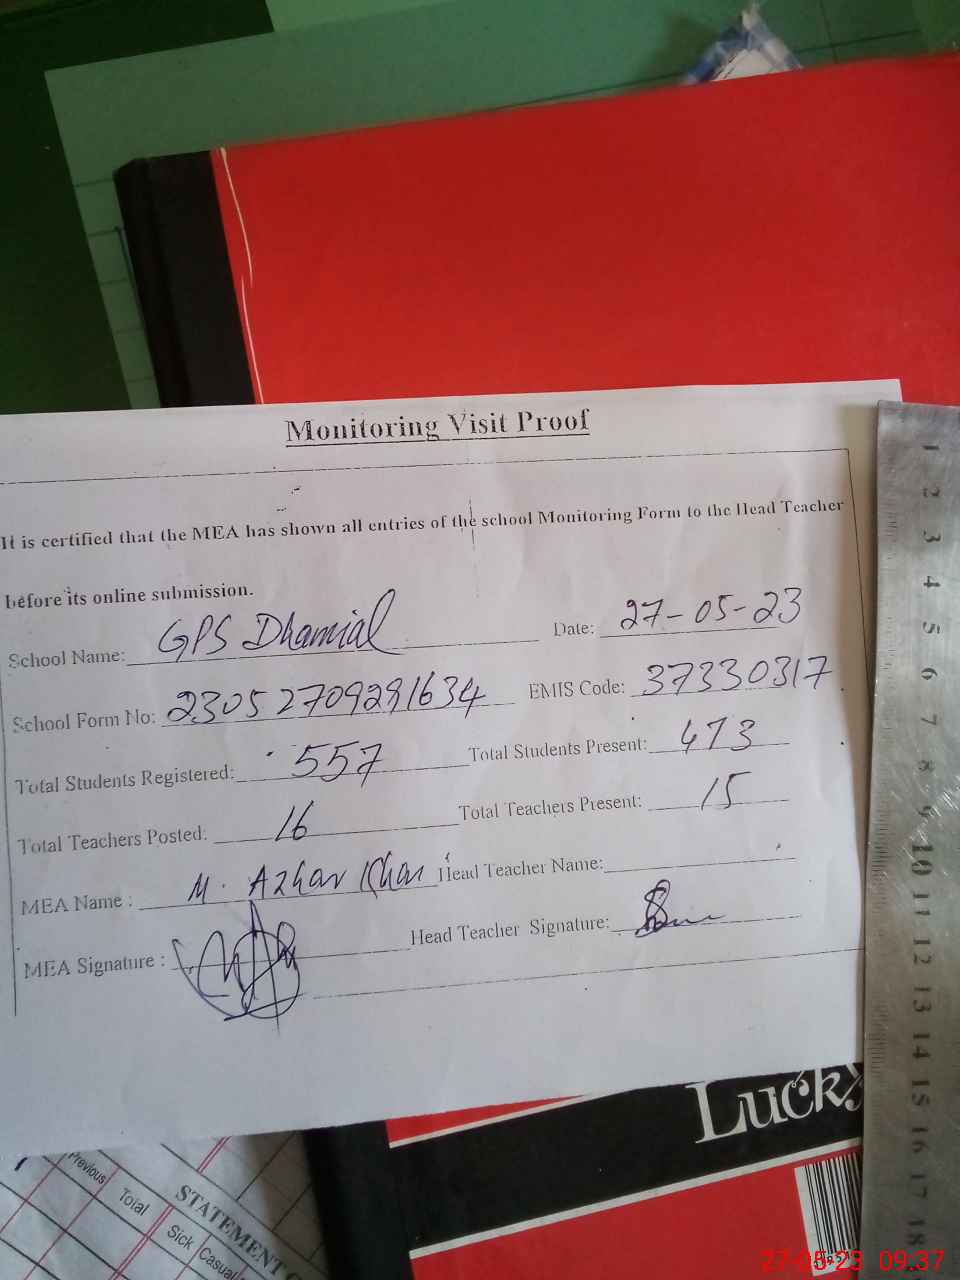 Monitoring Visit Proof
It is certified that the MEA has shown all entries of the school Monitoring Form to the Head Teacher
before its online submission.
School Name: GPS Dhamial Date: 27-05-23
School Form No: 230527092291634 EMIS Code: 37330317
Total Students Registered: 557 Total Students Present: 473
Total Teachers Posted: 16 Total Teachers Present: 15
MEA Name : M. Azhar Khan Head Teacher Name:
MEA Signature : Head Teacher Signature:
1 2 3 4 5 6 7 8 9 10 11 12 13 14 15 16 17 18
Lucky
Previous
Total
STATEMENT
Sick
Casual
27-05-23 09:37